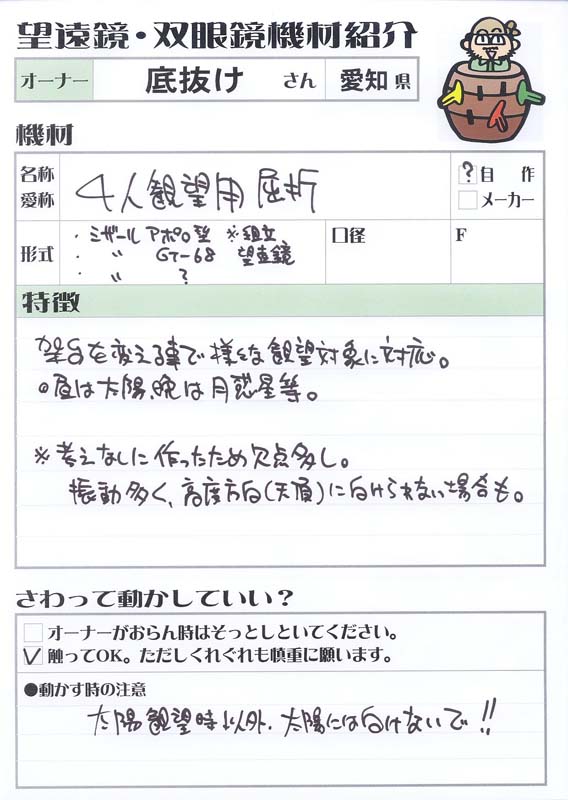 望遠鏡・双眼鏡機材紹介
オーナー 底抜け さん 愛知 県
機材
名称 愛称 4人観望用屈折 ? 自作 メーカー
形式 ・ミザール アポロ型 ※組立 口径 F
・ 〃 GT-68 望遠鏡
・ 〃 ?
特徴
架台を変える事で様々な観望対象に対応。
昼は太陽、晩は月惑星等。
※考えなしに作ったため欠点多し。
振動多く、高度方向(天頂)に向けられない場合も。
さわって動かしていい？
オーナーがおらん時はそっとしといてください。
✓ 触ってOK。ただしくれぐれも慎重に願います。
●動かす時の注意
太陽観望時以外、太陽には向けないで!!